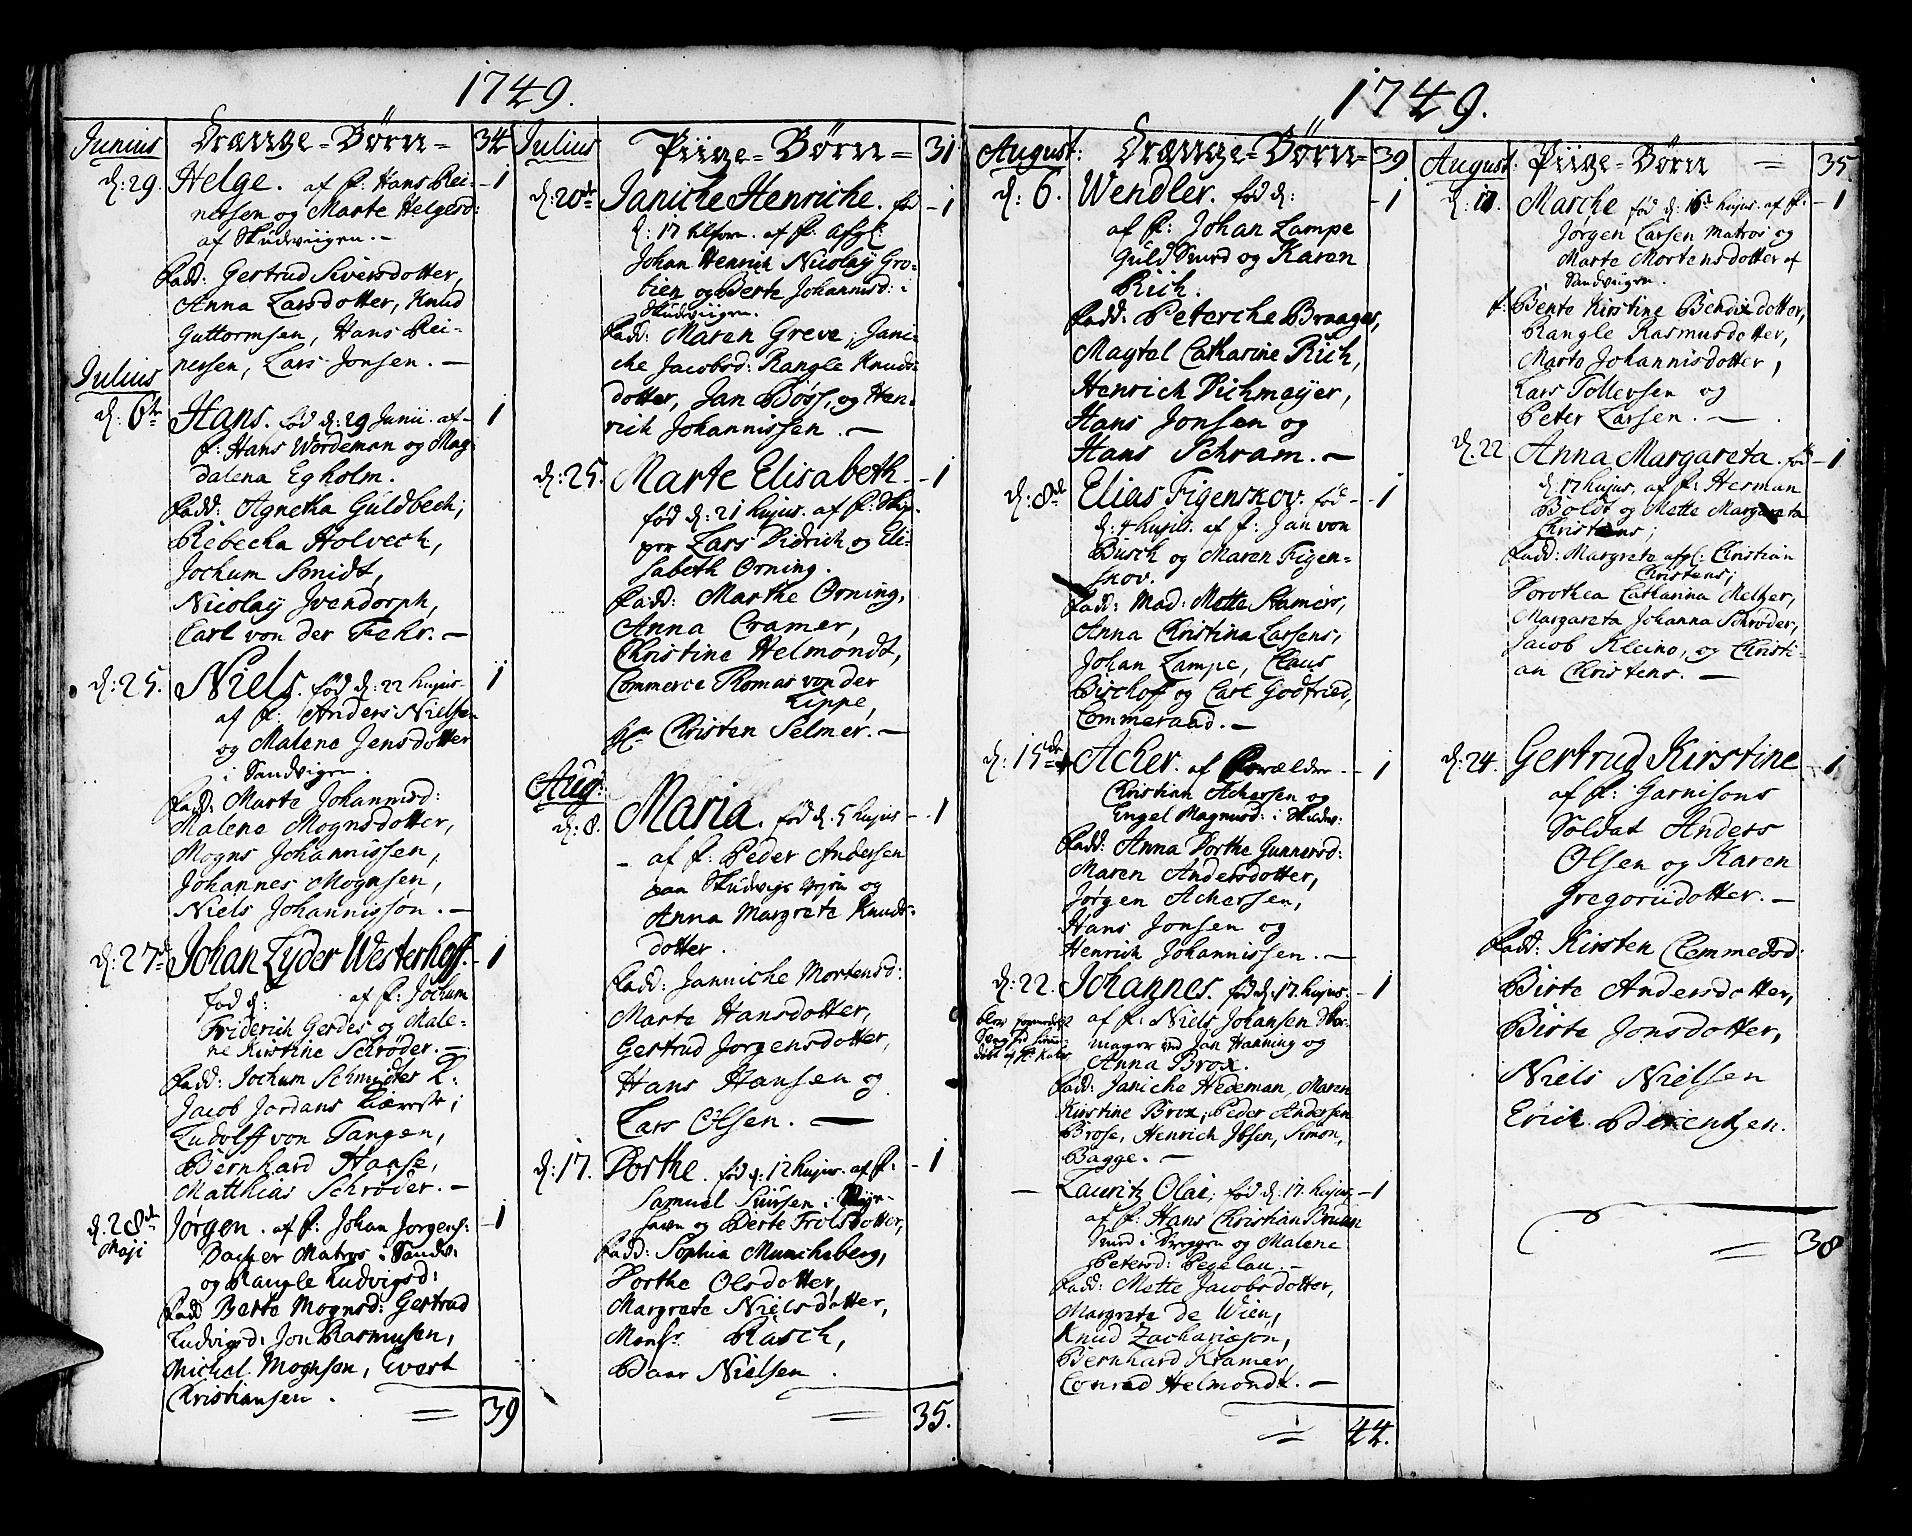 1749.
Junius
Drænge-Børn
34
d: 29.
Helge. af f: Hans Rei-
-1
nersen og Marte Helgesd:
af Skudwiigen.
Fadd: Gertrud Siversdotter,
Anna Larsdotter, Knud
Guttormsen, Hans Rei-
nersen, Lars Jonsen.
Julius
d: 6te
Hans. fød d: 29 Junii. af
1
f: Hans Wordeman og Mag-
dalena Egholm.
Fadd: Agnetha Guldbech;
Rebecka Holvech,
Jochum Smidt,
Nicolay Jvendorph,
Carl von der Fehr.
d: 25.
Niels. fød d: 22 hujus
1
af f: Anders Nielsen
og Malene Jensdotter
i Sandvigen.
Fadd: Marte Johannisd:
Malene Mognsdotter,
Mogns Johannissen,
Johannes Mognsen,
Niels Johannisson.
d: 27de
Johan Lyder Westerhoff.
-1
fød d: af f: Jochum
Friderich Gerdes og Male-
ne Kirstine Schrøder.
Fadd: Jochum Schmidts K:
Jacob Jordans Kiæreste;
Ludolff von Tangen,
Bernhard Hanse,
Matthias Schrøder.
d. 28de
Maji
Jørgen. af f: Johan Jørgens:
-1
Dacker Matros i Sandv:
og Rangle Ludvigsd:
Fadd Berte Mognsd: Gertrud
Ludvigsd: Jon Rasmusen,
Michel Mognsen, Evert
Christiansen.
39
Julius
Piige-Børn
31
d: 20de
Janiche Henriche. fød
-1
d: 17 tilforn. af f: afgl:
Johan Henrich Nicolaÿ Gro-
bien og Berte Johannisd: i
Skudwiigen.
Fadd: Maren Greve, Jani-
che Jacobsd: Rangle Knuds-
dotter, Jan Bøss, og Hen-
rich Johannissen.
d: 25.
Marte Elisabeth.
-1
fød d: 21 hujus. af f: Skip-
per Lars Didrich og Eli-
sabeth Orning.
Fadd: Marthe Orning,
Anna Cramer,
Christine Helmondt,
Commerce Thomas von der
Lippe,
Hr Christen Selmer.
Aug:
d: 8.
Maria. fød d. 5 hujus
-1
af f: Peder Andersen
paa Skudvigs Vejen og
Anna Margrete Knuds-
dotter.
Fadd: Janniche Mortensd:
Marte Hansdotter,
Gertrud Jørgensdotter,
Hans Hansen og
Lars Olsen.
d: 17.
Dorthe. fød d: 12 hujus. af f:
-1
Samuel Siursen i
havn og Berte Frolsdotter,
Fadd: Sophia Muncheberg,
Dorthe Olsdotter,
Margrete Nielsdotter,
Monsr. Rasch,
Daar Nielsen.
35.
1749.
August:
Drænge-Børn
39
d: 6.
Wendler. fød d:
-1
af f: Johan Lampe
Guld Smed og Karen
Rich.
Fadd: Peterche Braager,
Magtal Catharine Rich,
Henrich Dichmeijer,
Hans Jonsen og
Hans Schram.
d: 8de
Elias Figenskov. fød
-1
d: 4 hujus. af f: Jan von
Busch og Maren Figen-
skov.
Fadd: Mad: Mette Kramers,
Anna Christina Larsens,
Johan Lampe, Claus
Bischoff og Carl Godfried,
Commeraad.
d: 15de
Acher. af Forældre
-1
Christian Achersen og
Engel Magnusd: i Skudv:
Fadd: Anna Dorthe Gunnersd:
Maren Andersdotter,
Jørgen Achersen,
Hans Jonsen og
Henrich Johannissen.
d: 22.
Johannes. fød d. 17. hujus.
-1
af f: Niels Johansen
mager ved Jan Hanning og
Anna Brox.
Fadd: Janiche Hedeman, Maren
Kirstine Brox, Peder Andersen
Brose, Henrich Ibsen, Simon
Bagge.
Lauritz Olai; fød d: 17. hujus,
-1
af f: Hans Christian Bruun
Smed i Vreggen og Malene
Petersd: Pegelau.
Fadd: Mette Jacobsdotter,
Margrete de Wien,
Knud Zachariæsøn,
Bernhard Kramer,
Conrad Helmondt.
44.
August:
Piige-Børn
35.
d: 17.
Marche fød d. 16de hujus. af f.
-1
Jørgen Larsen Matros og
Marte Mortensdotter af
Sandviigen.
f. Bente Kirstine Bendixdotter,
Rangle Rasmusdotter,
Marto Johannisdotter,
Lars Tollevsen og
Peter Larsen.
d. 22
Anna Margareta. fød
-1
d. 17 hujus. af f: Herman
Boldt og Mette Margareta
Christens;
Fadd: Margrete afgl: Christian
Christens;
Dorothea Catharina Meltzer,
Margareta Johanna Schrøder,
Jacob Kleino, og Christi-
an Christens.
d: 24.
Gertrud Kirstine
-1
af f: Garnisons
Soldat Anders
Olsen og Karen
Gregoriidotter.
Fadd: Kirsten Clemmedsd:
Birte Andersdotter,
Birte Jonsdotter,
Niels Nielsen
Erich Berentzen.
38